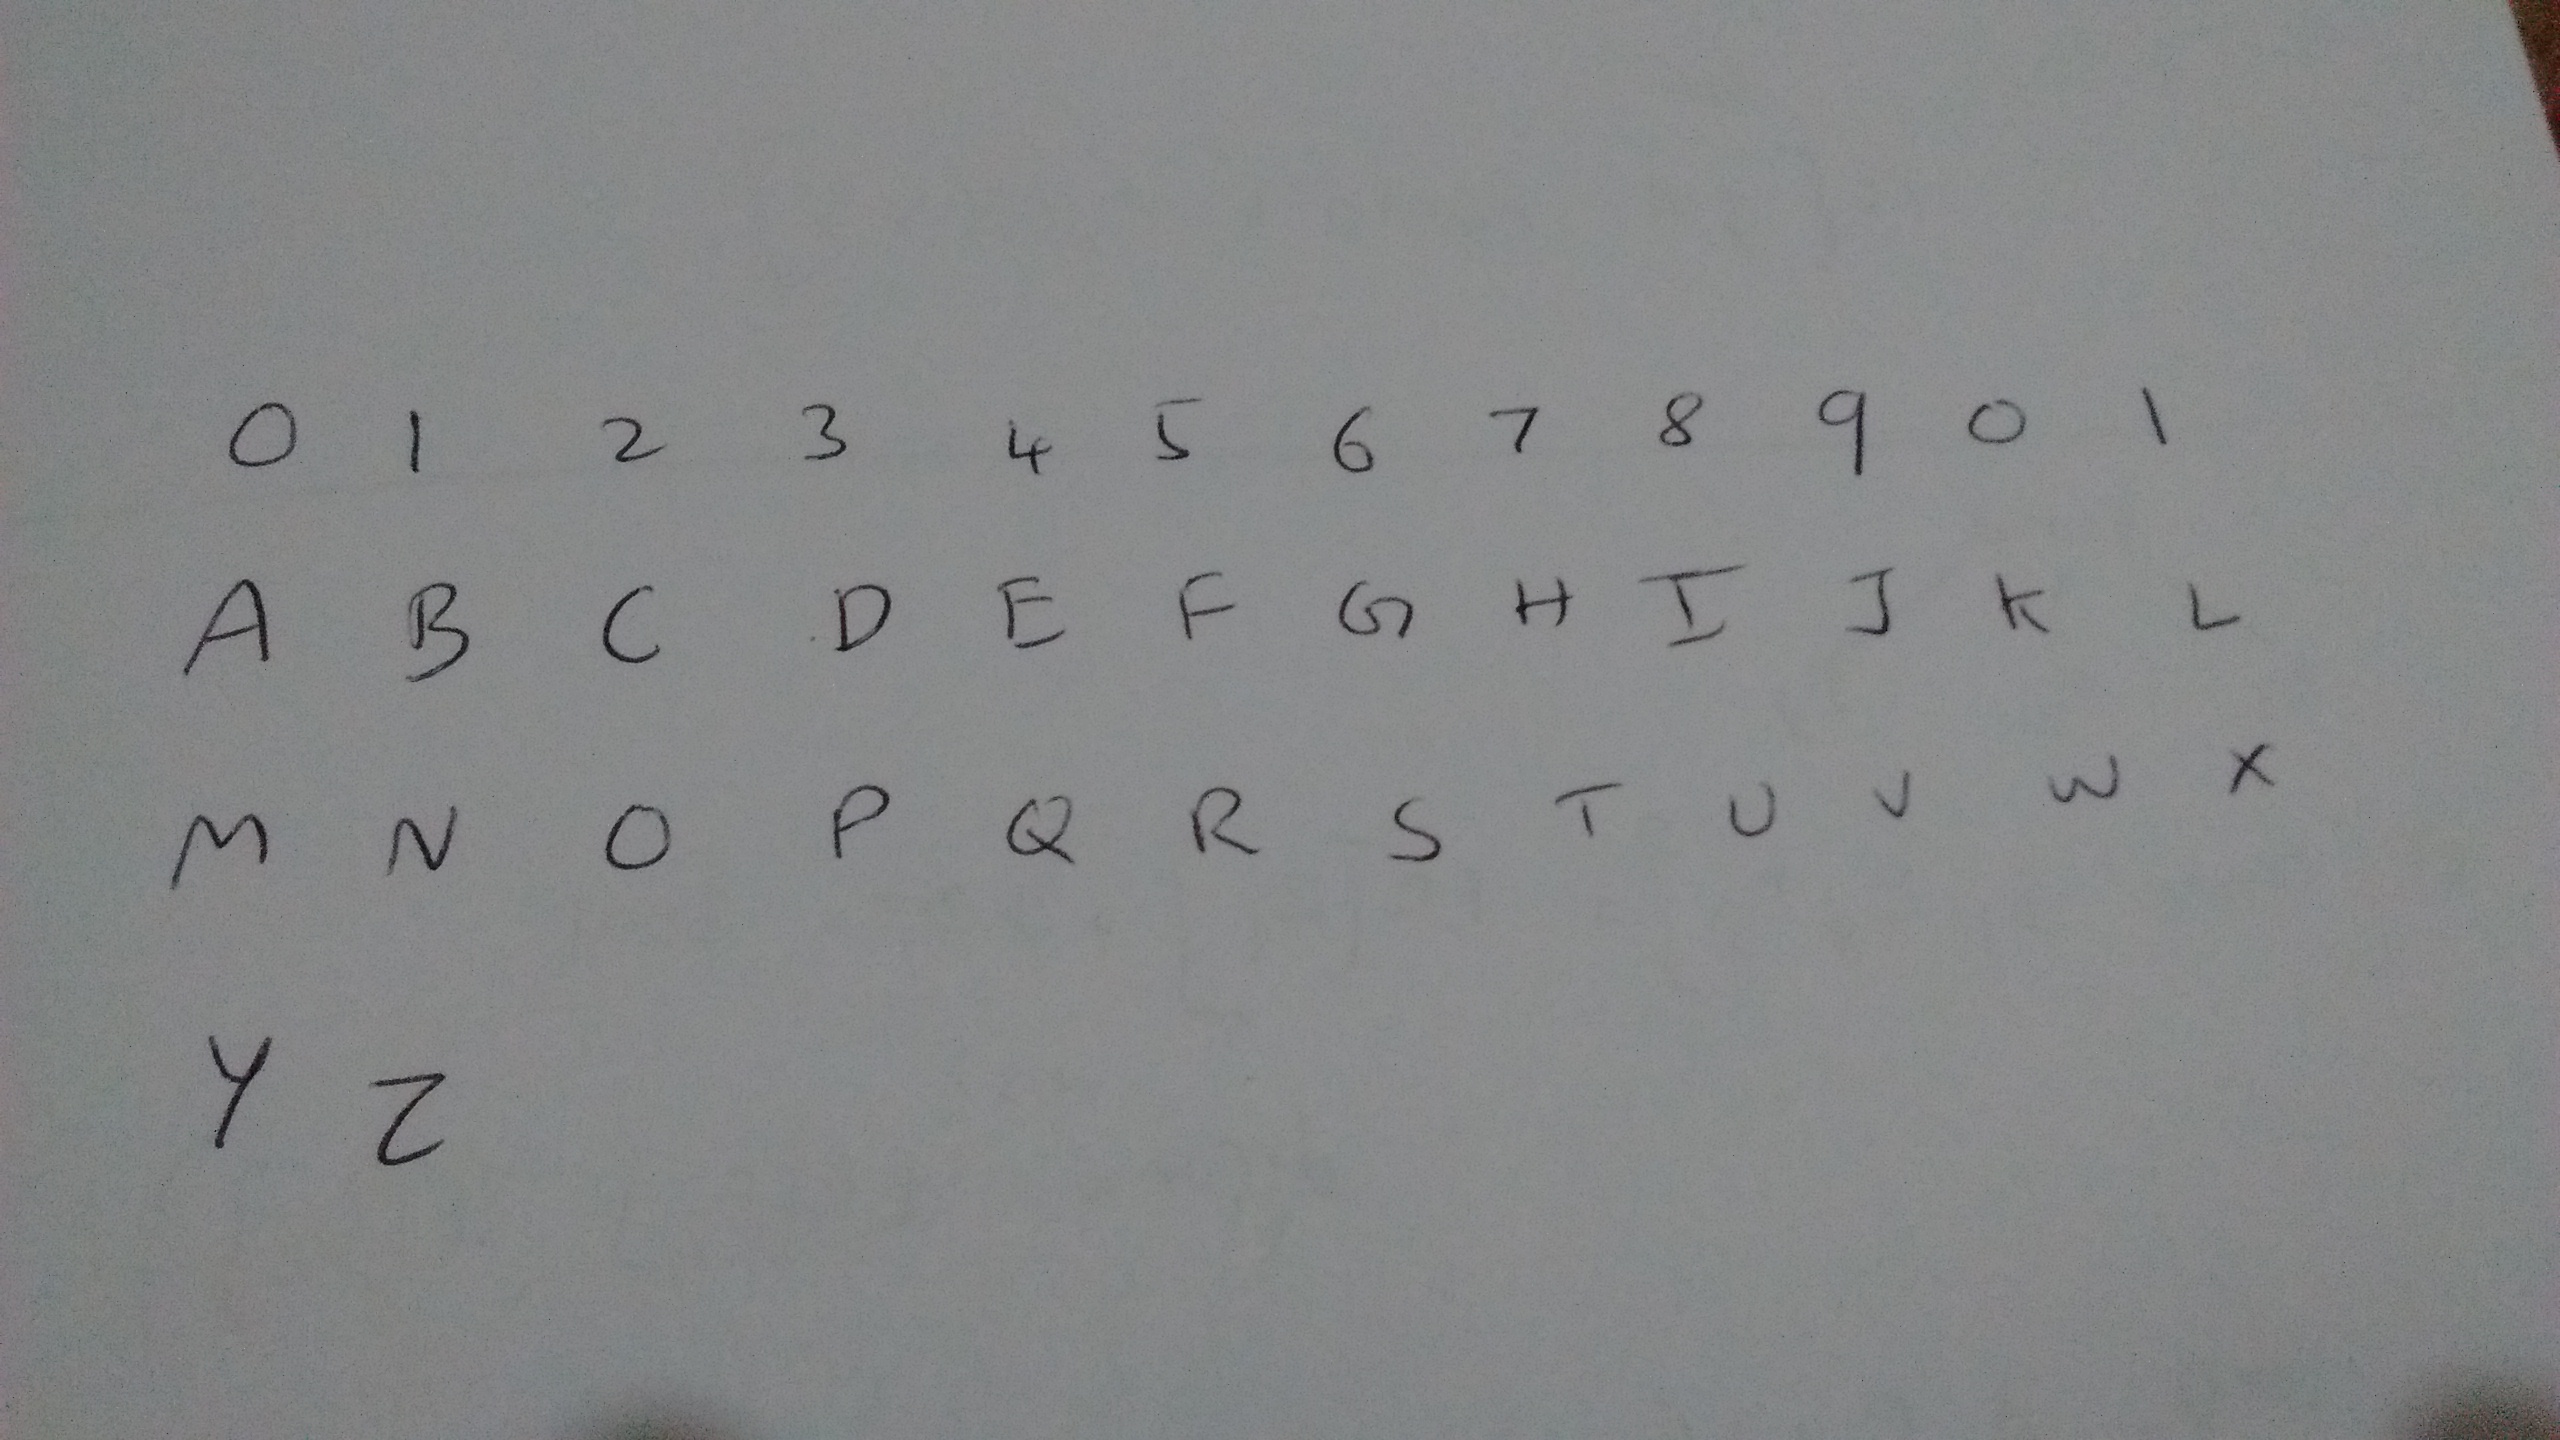 0 1 2 3 4 5 6 7 8 9 0 1
A B C D E F G H I J K L
M N O P Q R S T U V W X
Y Z